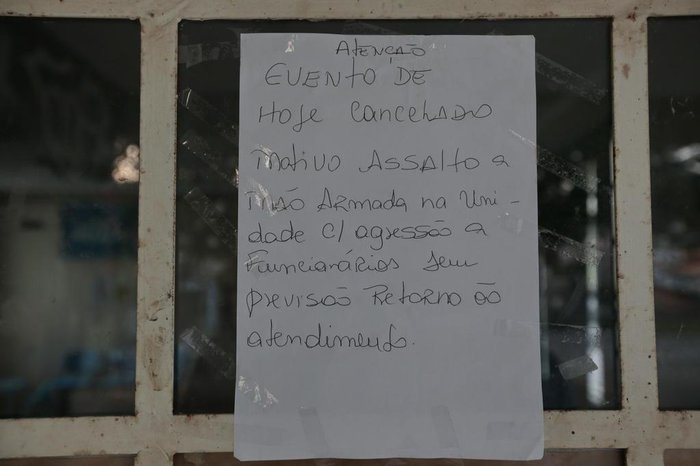 ATENÇÃO
EVENTO DE
Hoje CANCELADO
MOTIVO ASSALTO a
MÃO ARMADA na Uni-
dade c/ agressão a
Funcionários sem
previsão Retorno ao
atendimento.